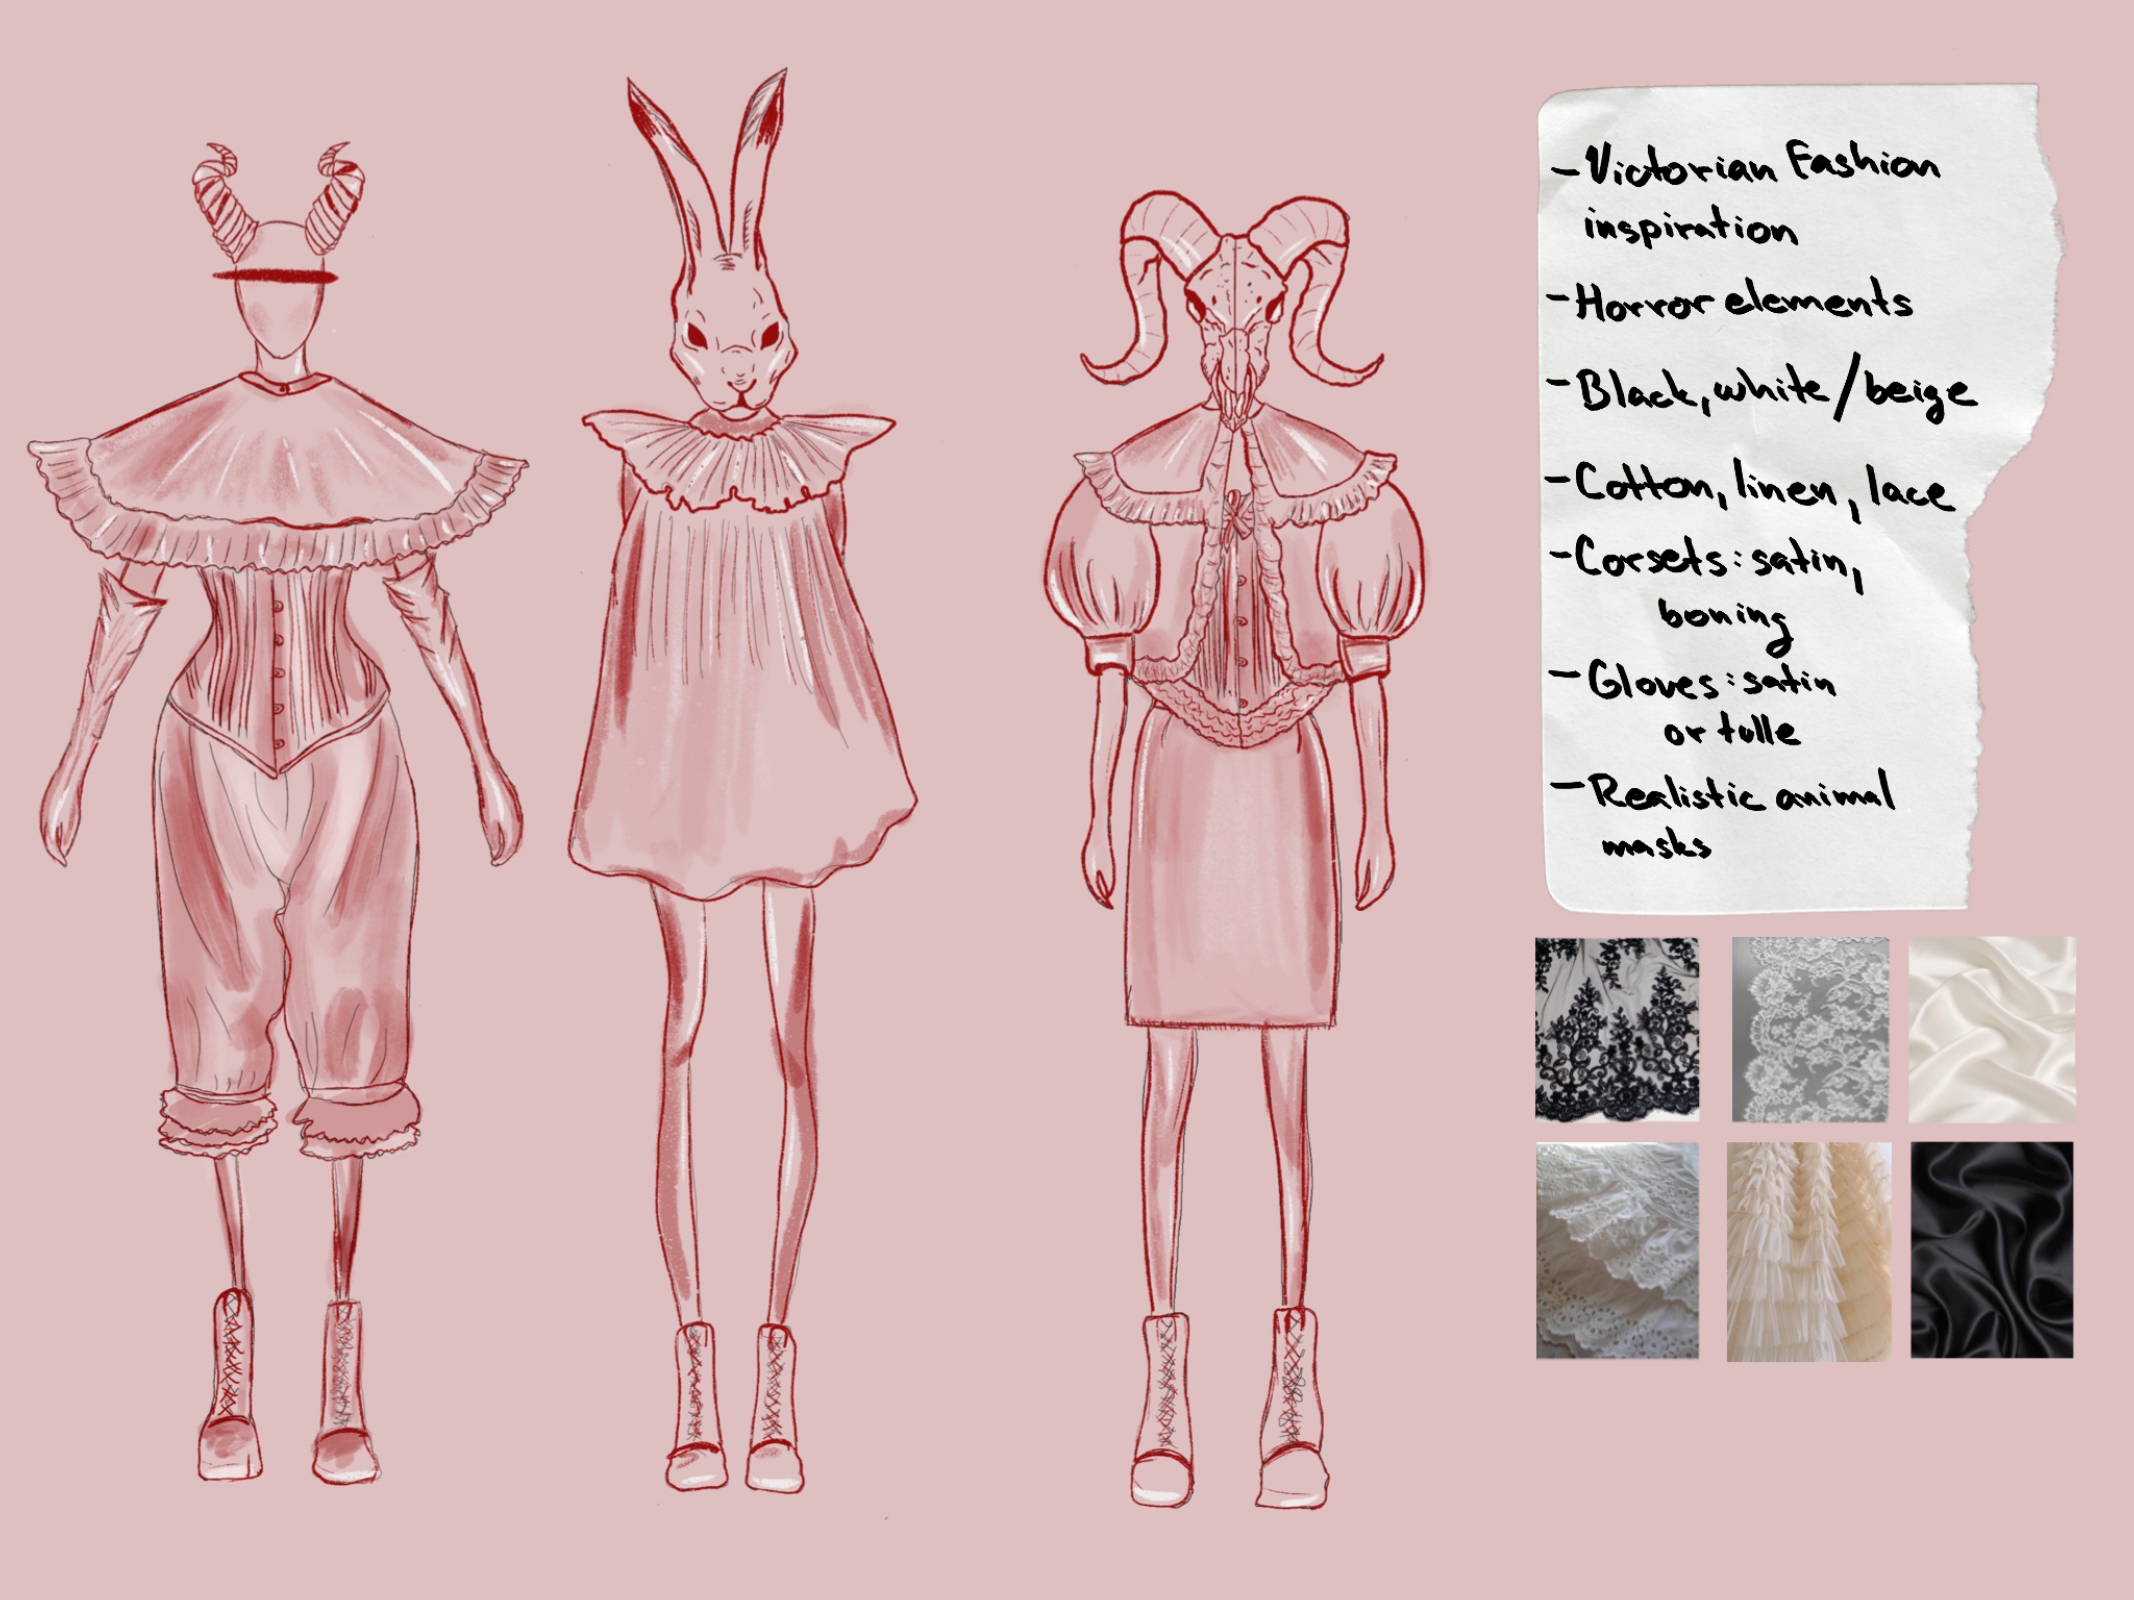 - Victorian Fashion
inspiration
- Horror elements
- Black, white/beige
- Cotton, linen, lace
- Corsets: satin,
boning
- Gloves: satin
or tulle
- Realistic animal
masks